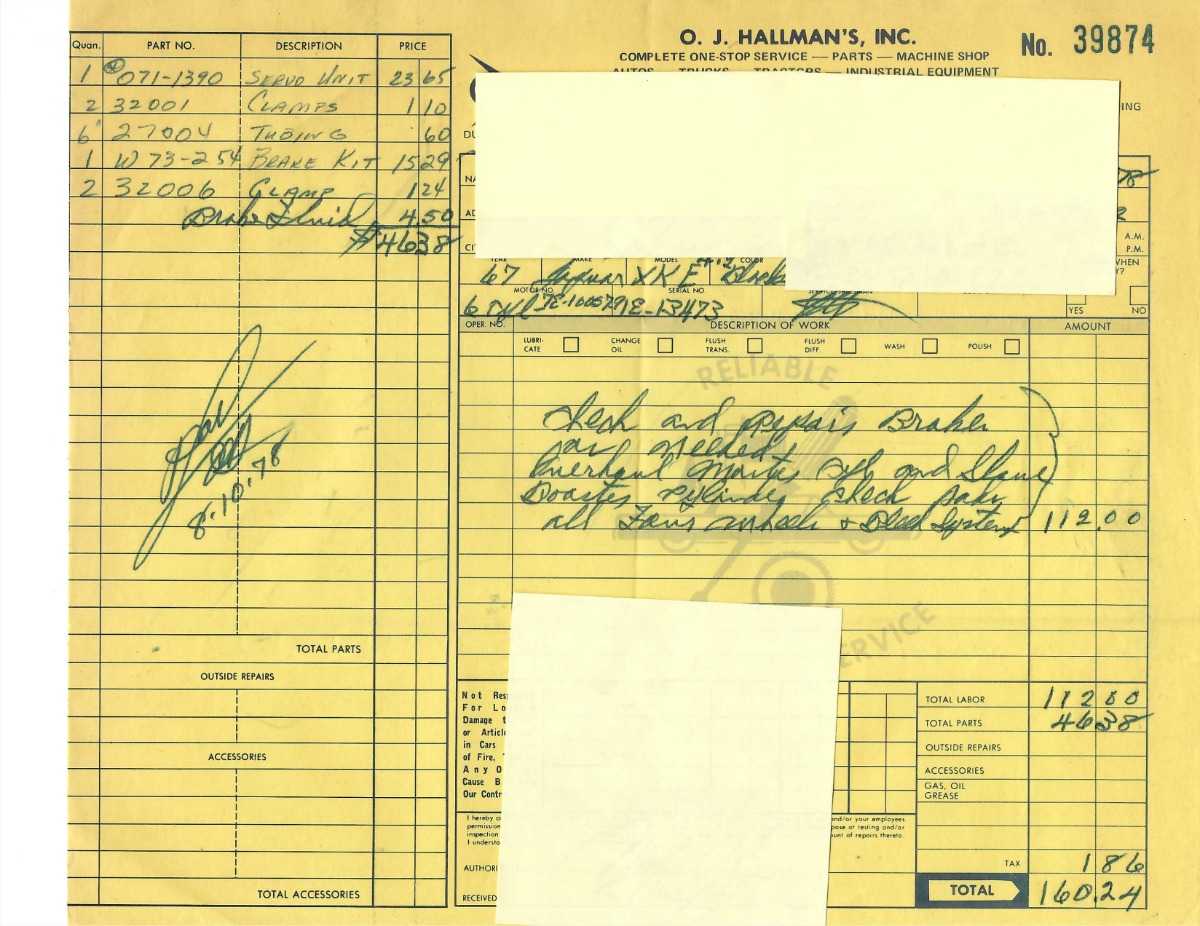 O. J. HALLMAN'S, INC.
No. 39874
COMPLETE ONE-STOP SERVICE — PARTS — MACHINE SHOP
AUTOS — TRUCKS — TRACTORS — INDUSTRIAL EQUIPMENT
Quan. PART NO. DESCRIPTION PRICE
1 071-1390 SERVO UNIT 23 65
2 32001 CLAMPS 1 10
6" 27004 TUBING 60
1 W 73-254 BRAKE KIT 15 29
2 32006 CLAMP 1 24
Brake Fluid 4 50
$46 38
8.10.78
TOTAL PARTS
OUTSIDE REPAIRS
ACCESSORIES
TOTAL ACCESSORIES
ING
DU
NA
78
AD
2
CI
A.M.
P.M.
WHEN
Y?
YEAR MAKE MODEL COLOR
67 Jaguar XKE Black
MOTOR NO. SERIAL NO.
6 Cyl 7E-10057 91E-13473
YES NO
OPER. NO. DESCRIPTION OF WORK AMOUNT
LUBRI-CATE CHANGE OIL FLUSH TRANS. FLUSH DIFF. WASH POLISH
RELIABLE
Check and Repair Brakes
as needed
Overhaul Master Cyl and Slave
Booster Cylinder Check
all Four wheels + Bleed System 112.00
SERVICE
Not Res
For Lo
Damage t
or Articl
in Cars
of Fire,
Any O
Cause B
Our Contr
I hereby
permission
inspection
I understa
and/or your employees
pose of testing and/or
unt of repairs thereto
AUTHORI
RECEIVED
TOTAL LABOR 112 00
TOTAL PARTS 46 38
OUTSIDE REPAIRS
ACCESSORIES
GAS, OIL
GREASE
TAX 1 86
TOTAL 160.24